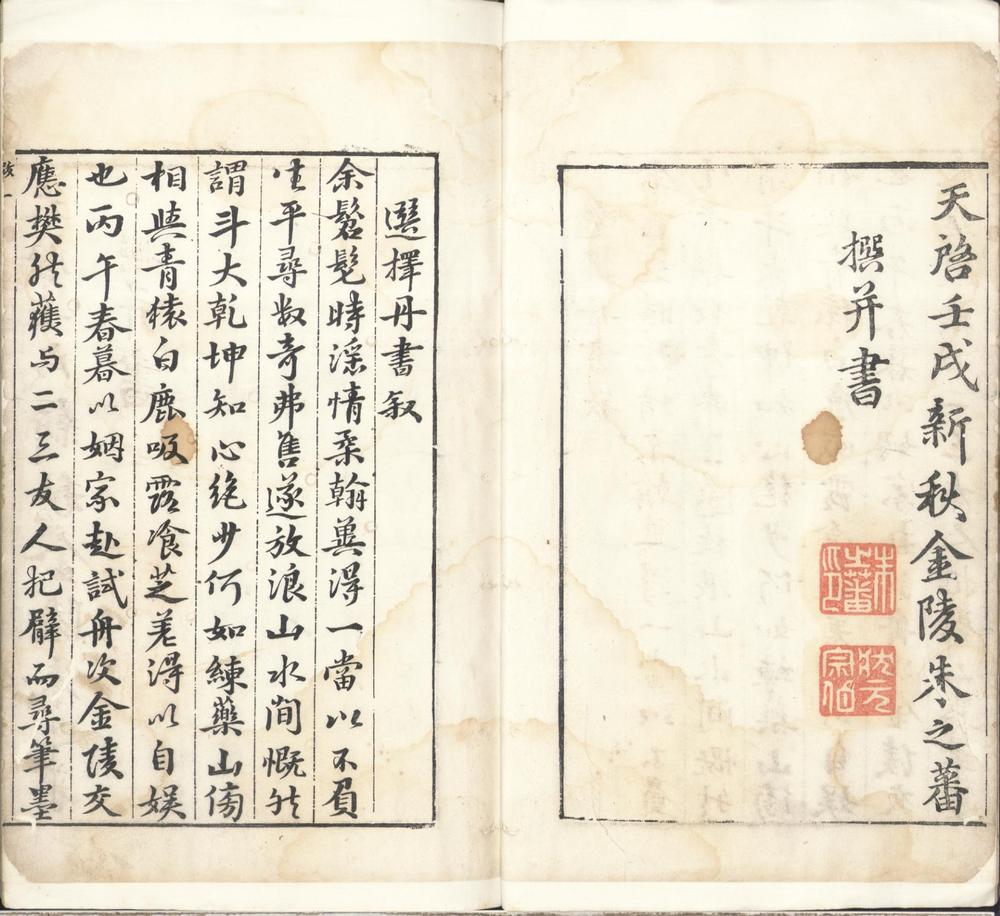 天啓壬戌新秋金陵朱之蕃
撰并書
朱之蕃印
狀元宗伯
選擇丹書叙
余髫髦時滛情柔翰兾淂一當以不負
生平尋數竒弗售遂放浪山水间慨然
謂斗大乾坤知心绝少何如練藥山傍
相與青猿白鹿吸露飡芝差淂以自娱
也丙午春暮以姻家赴試舟次金陵交
應樊然蓷与二三友人把臂而尋筆墨